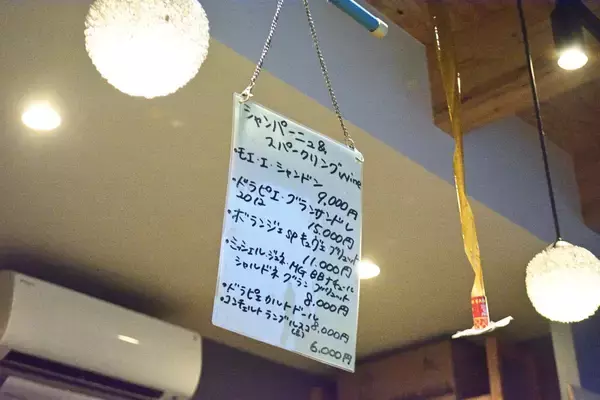 シャンパーニュ&
スパークリングwine
・モエ・エ・シャンドン
9,000円
・ドラピエ・グランサンドレ
2012
15,000円
・ボランジェ SP キュヴェ ブリュット
11,000円
・ミッシェル・ジュネ MG BB ナチュール
シャルドネ グラン ブリュット
8,000円
・ドラピエ カルト ドール
8,000円
・コンチェルト ランブルスコ
(赤)
6,000円